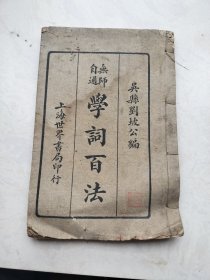 吳縣劉坡公編
無師自通
學詞百法
上海世界書局印行